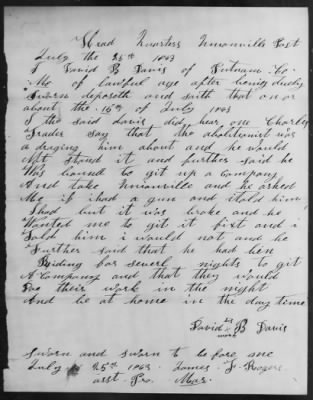 Head Quarters Unionville Post
July the 25th 1863
I David B Davis of Putnam Co
Mo of lawful age after being duly
Sworn deposeth and saith that on or
about the 15th of July 1863
I the said Davis did hear one Charley
Trader say that the abolitionist was
a draging him about and he would
Not Stand it and further said he
Was bound to git up a Company
And take Unionville and he asked
Me if i had a gun and i told him
I had but it was broke and he
Wanted me to git it fixt and i
Told him i would not and he
Further said that he had ben
Riding for severl nights to git
A Company and that they would
Doe their work in the night
And be at home in the day time
David his B Davis
mark
Sworn and sworn to before me
July 25th 1863 James F. Rogers
asst. Pro. Mar.